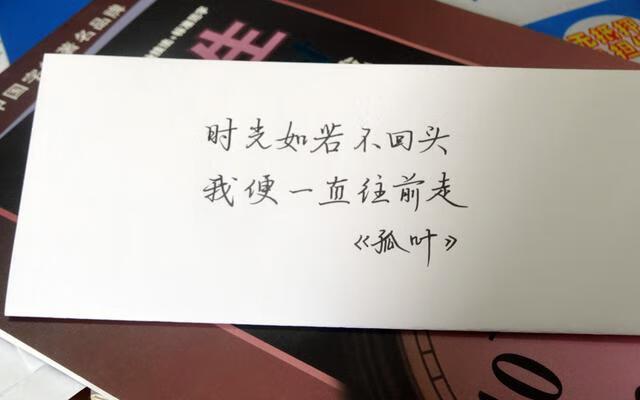 时光如若不回头
我便一直往前走
《孤叶》
生